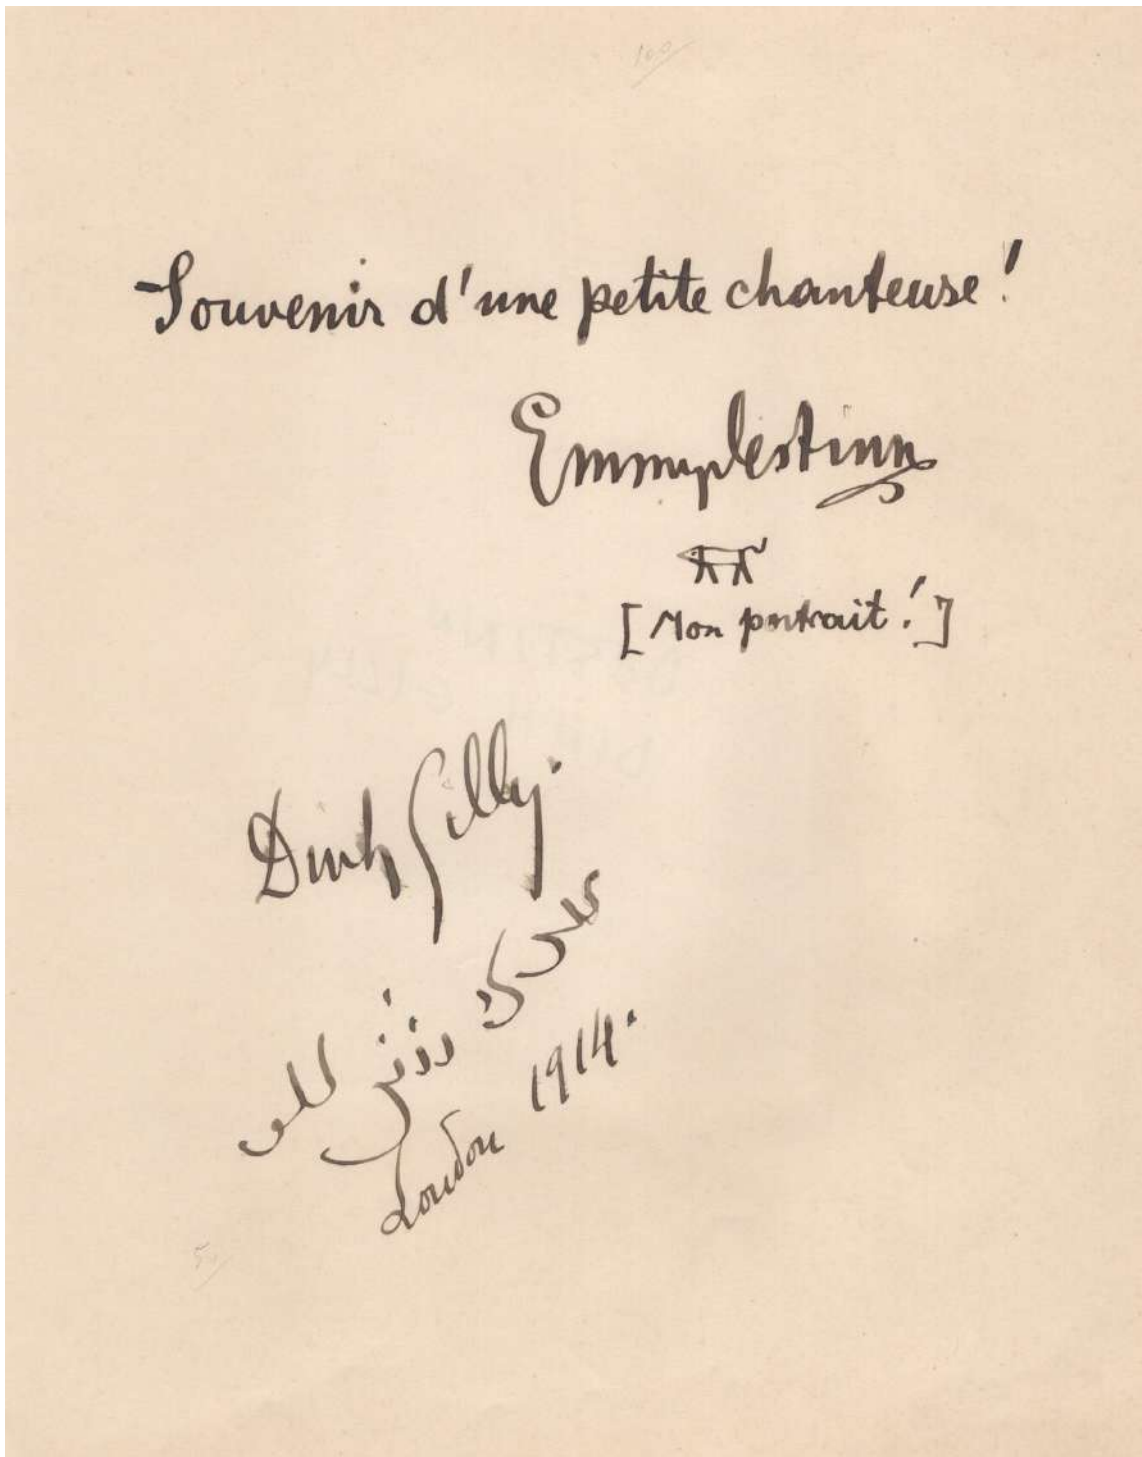 Souvenir d'une petite chanteuse!
Emmydestinn
[Mon portrait!]
Dinh Gilly.
London 1914.